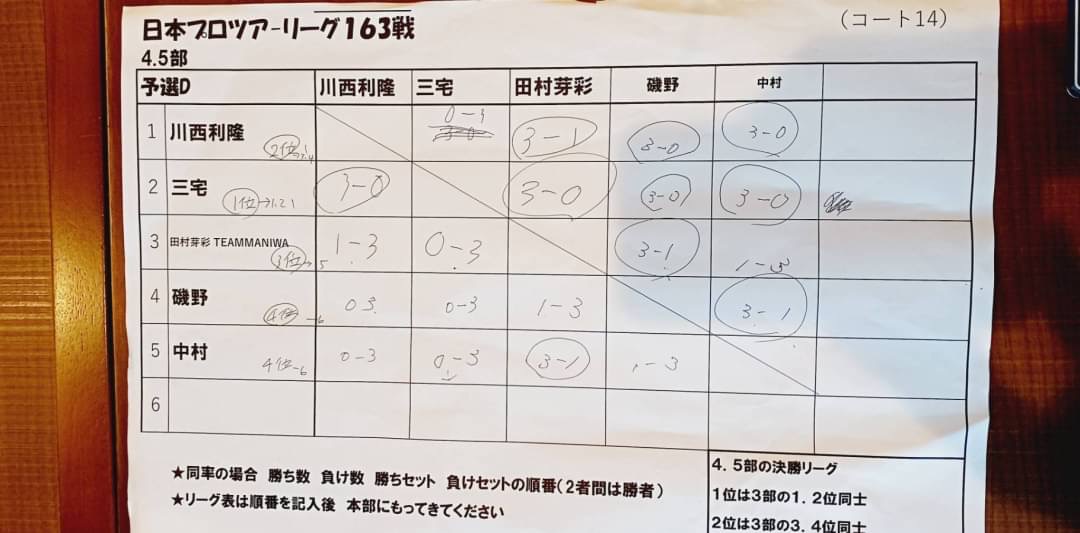 日本プロツアーリーグ163戦
(コート14)
4.5部
予選D 川西利隆 三宅 田村芽彩 磯野 中村
1 川西利隆 2位 0-3 3-1 3-0 3-0
2 三宅 1位 3-0 3-0 3-0 3-0
3 田村芽彩 TEAMMANIWA 3位 1-3 0-3 3-1 1-3
4 磯野 4位 0 3 0-3 1-3 3-1
5 中村 4位 0-3 0-3 3-1 -3
6
★同率の場合 勝ち数 負け数 勝ちセット 負けセットの順番(2者間は勝者)
★リーグ表は順番を記入後 本部にもってきてください
4.5部の決勝リーグ
1位は3部の1.2位同士
2位は3部の3.4位同士